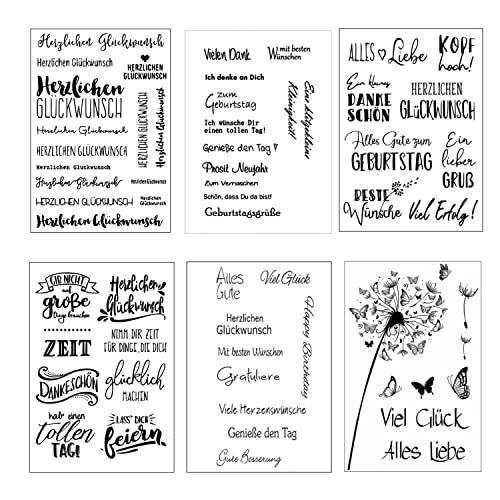 Herzlichen Glückwunsch
Herzlichen Glückwunsch
HERZLICHEN
GLÜCKWUNSCH
Herzlichen
GLÜCKWUNSCH
Herzlichen Glückwunsch
HERZLICHEN GLÜCKWUNSCH
Herzlichen Glückwunsch
Herzlichen Glückwunsch
HERZLICHEN GLÜCKWUNSCH
Herzlichen Glückwunsch
HERZLICHEN GLÜCKWUNSCH
Herzlichen Glückwunsch
Herzlichen Glückwunsch
Herzlichen Glückwunsch
Vielen Dank
mit besten
Wünschen
Ich denke an Dich
zum
Geburtstag
Ich wünsche Dir
einen tollen Tag!
Genieße den Tag!
Prosit Neujahr
Zum Vernaschen
Schön, dass Du da bist!
Geburtstagsgrüße
Eine klitzekleine
Kleinigkeit
ALLES Liebe
KOPF
hoch!
Ein kleines
DANKE
SCHÖN
HERZLICHEN
GLÜCKWUNSCH
Alles Gute zum
GEBURTSTAG
Ein
lieber
GRUß
BESTE
Wünsche
Viel Erfolg!
GIB NICHT
auf
große
Dinge brauchen
ZEIT
DANKESCHÖN
hab einen
tollen
TAG!
Herzlichen
Glückwunsch
NIMM DIR ZEIT
FÜR DINGE, DIE DICH
glücklich
MACHEN
LASS' DICH
feiern
Alles
Gute
Viel Glück
Herzlichen
Glückwunsch
Happy Birthday
Mit besten Wünschen
Gratuliere
Viele Herzenswünsche
Genieße den Tag
Gute Besserung
Viel Glück
Alles Liebe